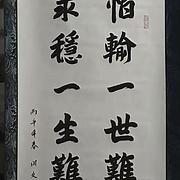 怕輸一世難
求穩一生難
丙午年春